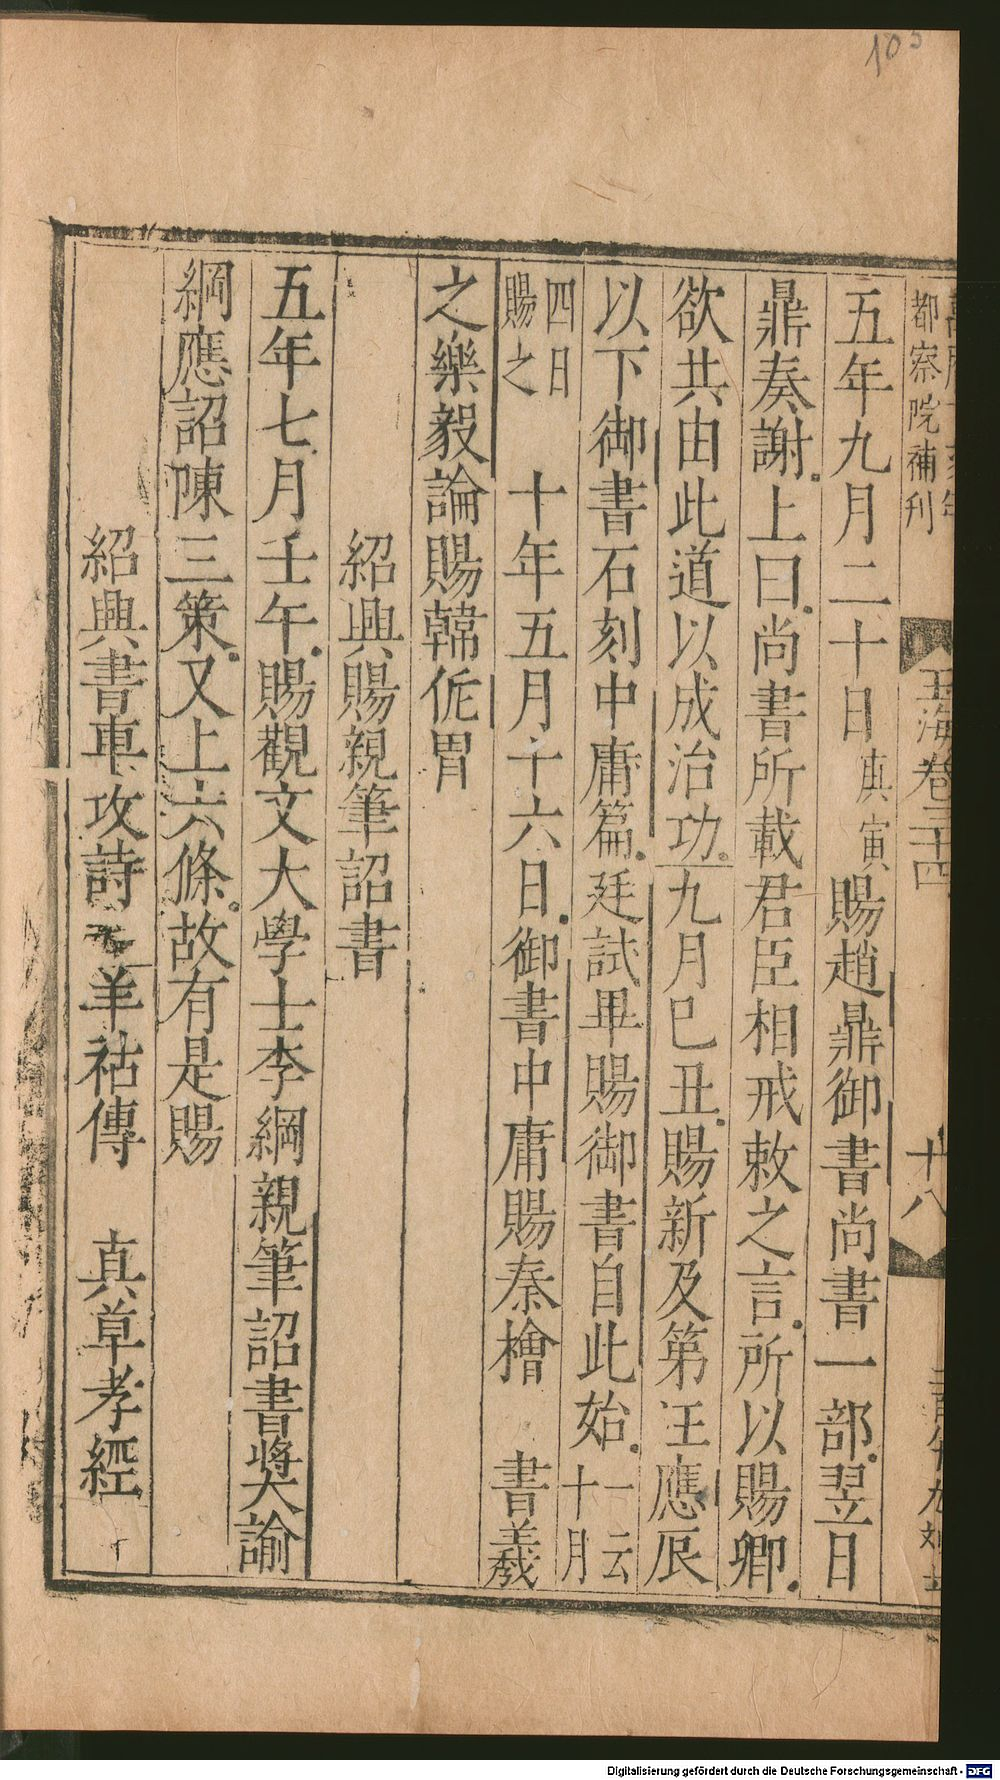 103
都察院補刊
玉海卷三十四
十八
五年九月二十日庚寅賜趙鼎御書尚書一部翌日
鼎奏謝上曰尚書所載君臣相戒敕之言所以賜卿
欲共由此道以成治功九月巳丑賜新及第汪應辰
以下御書石刻中庸篇廷試畢賜御書自此始一云十月
四日賜之 十年五月十六日御書中庸賜秦檜 書羲
之樂毅論賜韓侂冑
紹興賜親筆詔書
五年七月壬午賜觀文大學士李綱親筆詔書奬諭
綱應詔陳三策又上六條故有是賜
紹興書車攻詩 羊祜傳 真草孝經
Digitalisierung gefördert durch die Deutsche Forschungsgemeinschaft - DFG